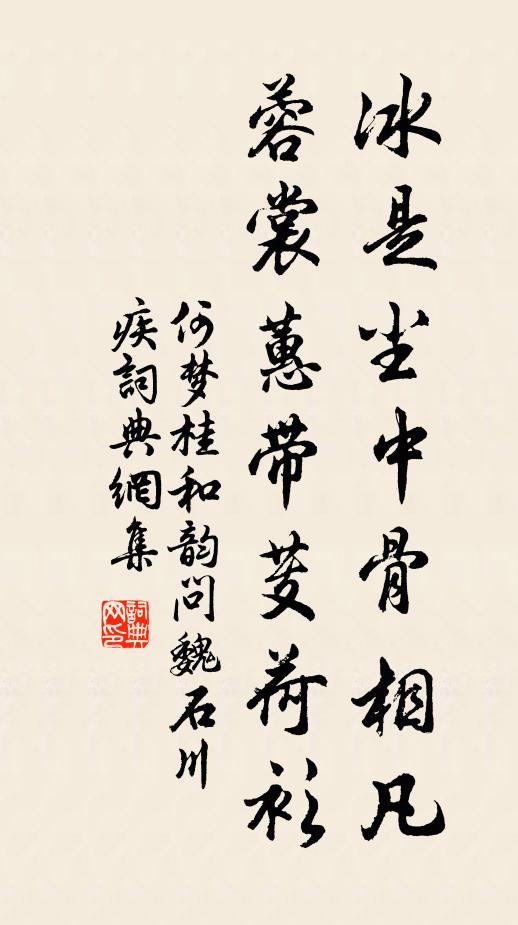 冰是尘中骨相凡
蓉裳蕙帶芰荷衫
何梦桂和韵问魏石川
疾詞典網集
詞典网印